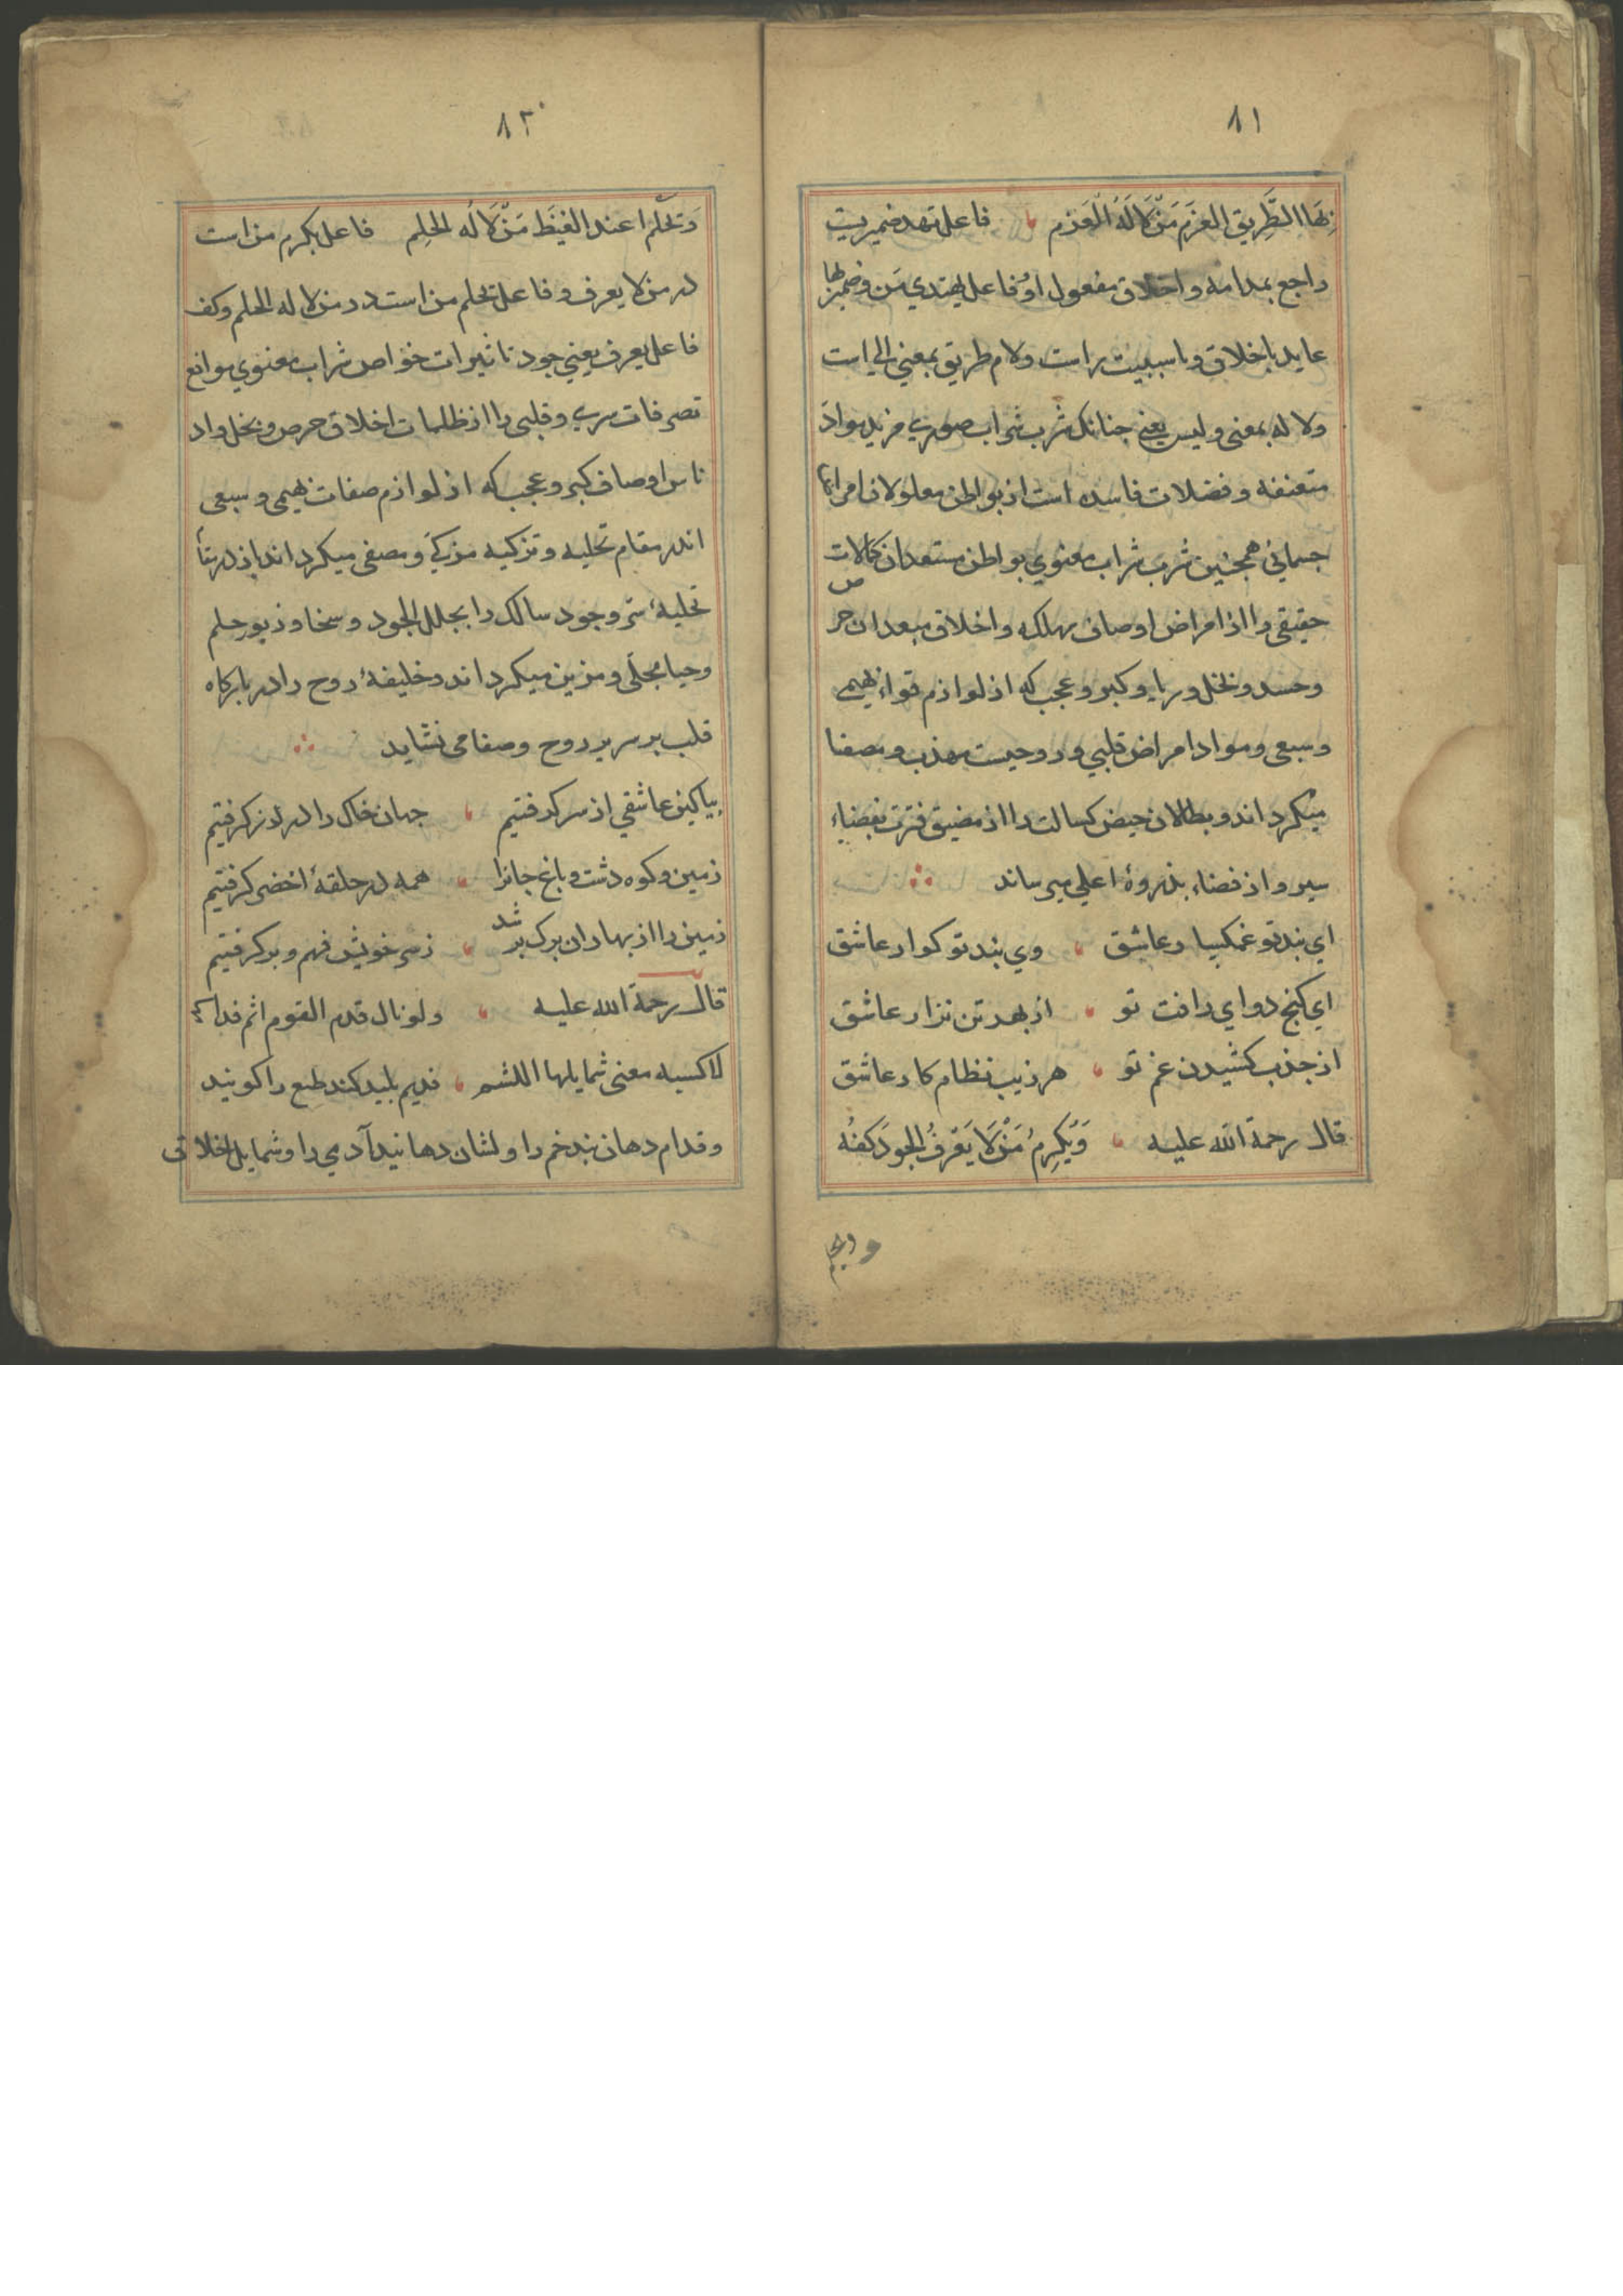 ٨١
بِهَا الطَّرِيقِ العَزمِ مَنْ لَا لَهُ الْعَزم فاعل تهد ضميريت
راجع بمدامه و اخلاق مفعول او و فاعل يهتدي مَن و ضمير بها
عايد باخلاق و با سببيت راست و لام طريق بمعني الي است
و لا له بمعنى و ليس يعني چنانك شرب شراب صوري مزيد مواد
متعفنه و فضلات فاسده است از بواطن معلولان امراض
جسماني همچنين شرب شراب معنوي بواطن مستعدان كمالات
حقيقي را از امراض اوصاف مهلكه و اخلاق مبعدان حرص
و حسد و بخل و ريا و كبر و عجب كه از لوازم قواء بهيمى
و سبعى و مواد امراض قلبي و روحيست مهذب و مصفا
ميكرداند و بطالان حيض كسالت را از مضيق فترت بفضاء
سير و از فضاء بذروۀ اعلي ميرساند
اي بند تو غمكسار عاشق وي بند تو كوار عاشق
اي كنج دواي رافت تو از بهر تن نزار عاشق
از جذب كشيدن غم تو هر زيب نظام كار عاشق
قال رحمة الله عليه وَيُكرِمُ مَنْ لَا يَعْرِفُ الجودَ كفُه
و يحلم
٨٢
وَ يَحْلُم عند الغيظ مَنْ لَا لَه الحلِم فاعل يكرم من است
در من لا يعرف و فاعل يحلم من است در من لا له الحلم و كف
فاعل يعرف يعني جود تاثيرات خواص شراب معنوي موانع
تصرفات سري و قلبى را از ظلمات اخلاق حرص و بخل و اد
ناس اوصاف كبر و عجب كه از لوازم صفات بهيمى و سبعى
اند در مقام تخليه و تزكيه مزكي و مصفى ميكرداند باز در
تحليۀ سر وجود سالك را بحلل الجود و سخا و زيور حلم
و حيا مُجلّى و مزين ميكرداند و خليفۀ روح را در باركاه
قلب بر سرير روح و صفا مى نشايد
بياكين عاشقي از سر كرفتيم جهان خاك را در زر كرفتيم
زمين و كوه و دشت و باغ جانرا همه در حلقۀ اخضر كرفتيم
زمين را از بهاران برك بر شد ز سر خويش فهم و بر كرفتيم
قال رحمة الله عليه و لو نال قدم القوم لثم فدامها
لاكسبه معنى شمايلها اللثم فديم بليد كند طبع را كويند
و فدام دهان بند خم را و لثان دهانيد آدمي را و شمايل اخلاقى